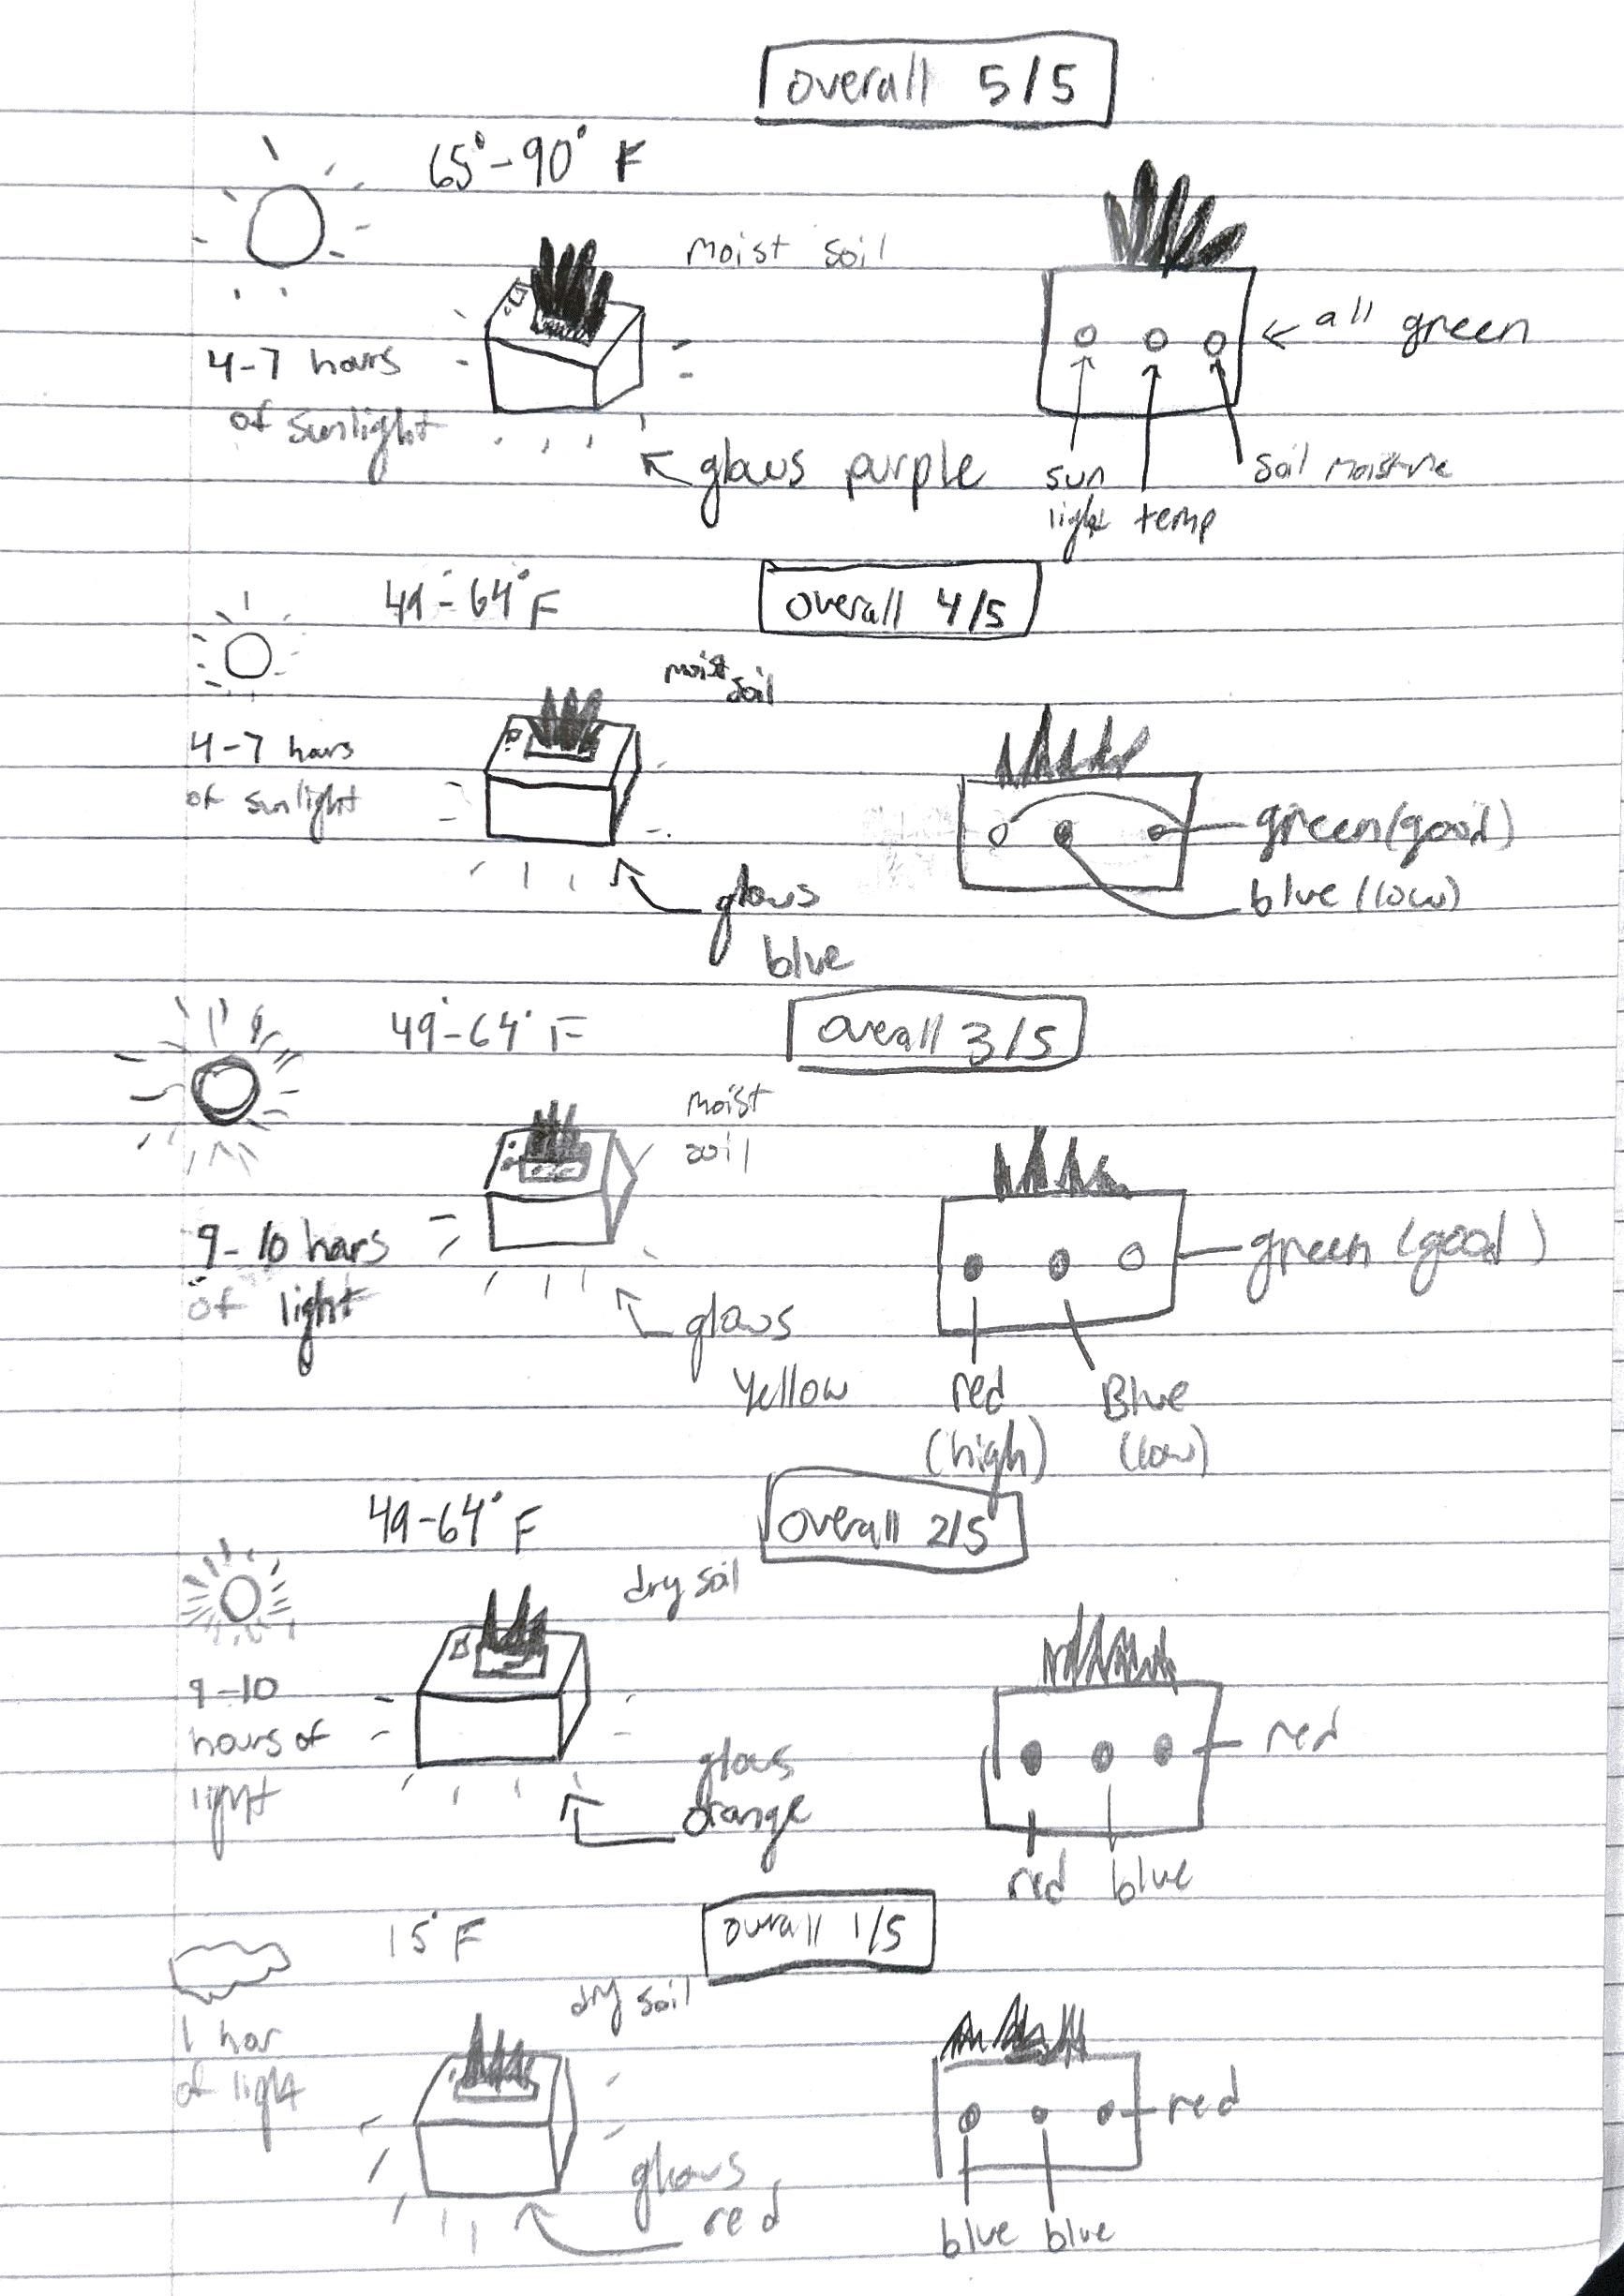 overall 5/5
65°-90° F
Moist soil
4-7 hours
of sunlight
glows purple
all green
sun
light
temp
soil moisture
49°-64° F
overall 4/5
moist
soil
4-7 hours
of sunlight
glows
blue
green (good)
blue (low)
49°-64° F
overall 3/5
moist
soil
9-10 hours
of light
glows
Yellow
green (good)
red
(high)
Blue
(low)
49-64° F
overall 2/5
dry soil
9-10
hours of
light
glows
orange
red
red
blue
15° F
overall 1/5
dry soil
1 hour
of light
glows
red
red
blue
blue